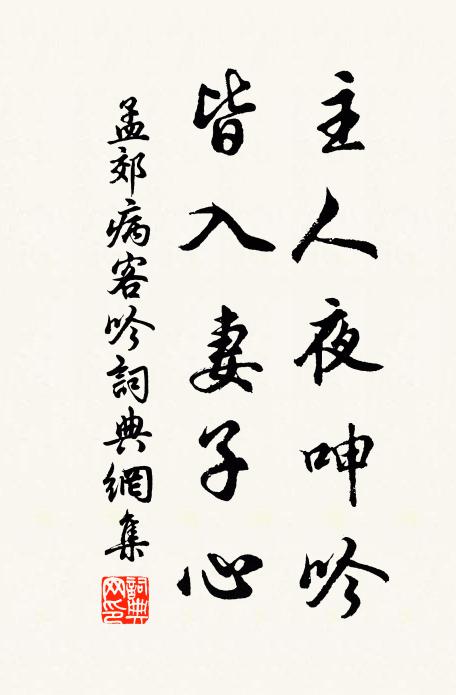 主人夜呻吟
皆入妻子心
孟郊病客吟詞典網集
詞典
网印